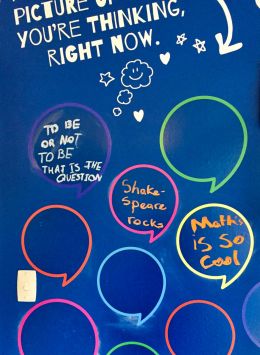 PICTURE
YOU'RE THINKING,
RIGHT NOW.
TO BE
OR NOT
TO BE
THAT IS THE
QUESTION
Shake-
speare
rocks
Maths
is so
Cool